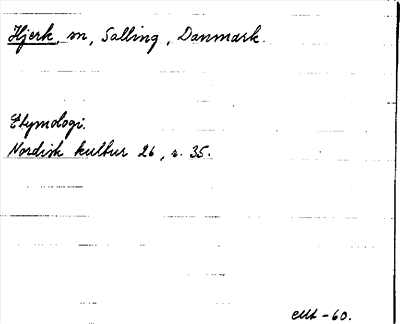 Hjerk, sn, Salling, Danmark.
Etymologi.
Nordisk kultur 26, s. 35.
-60.